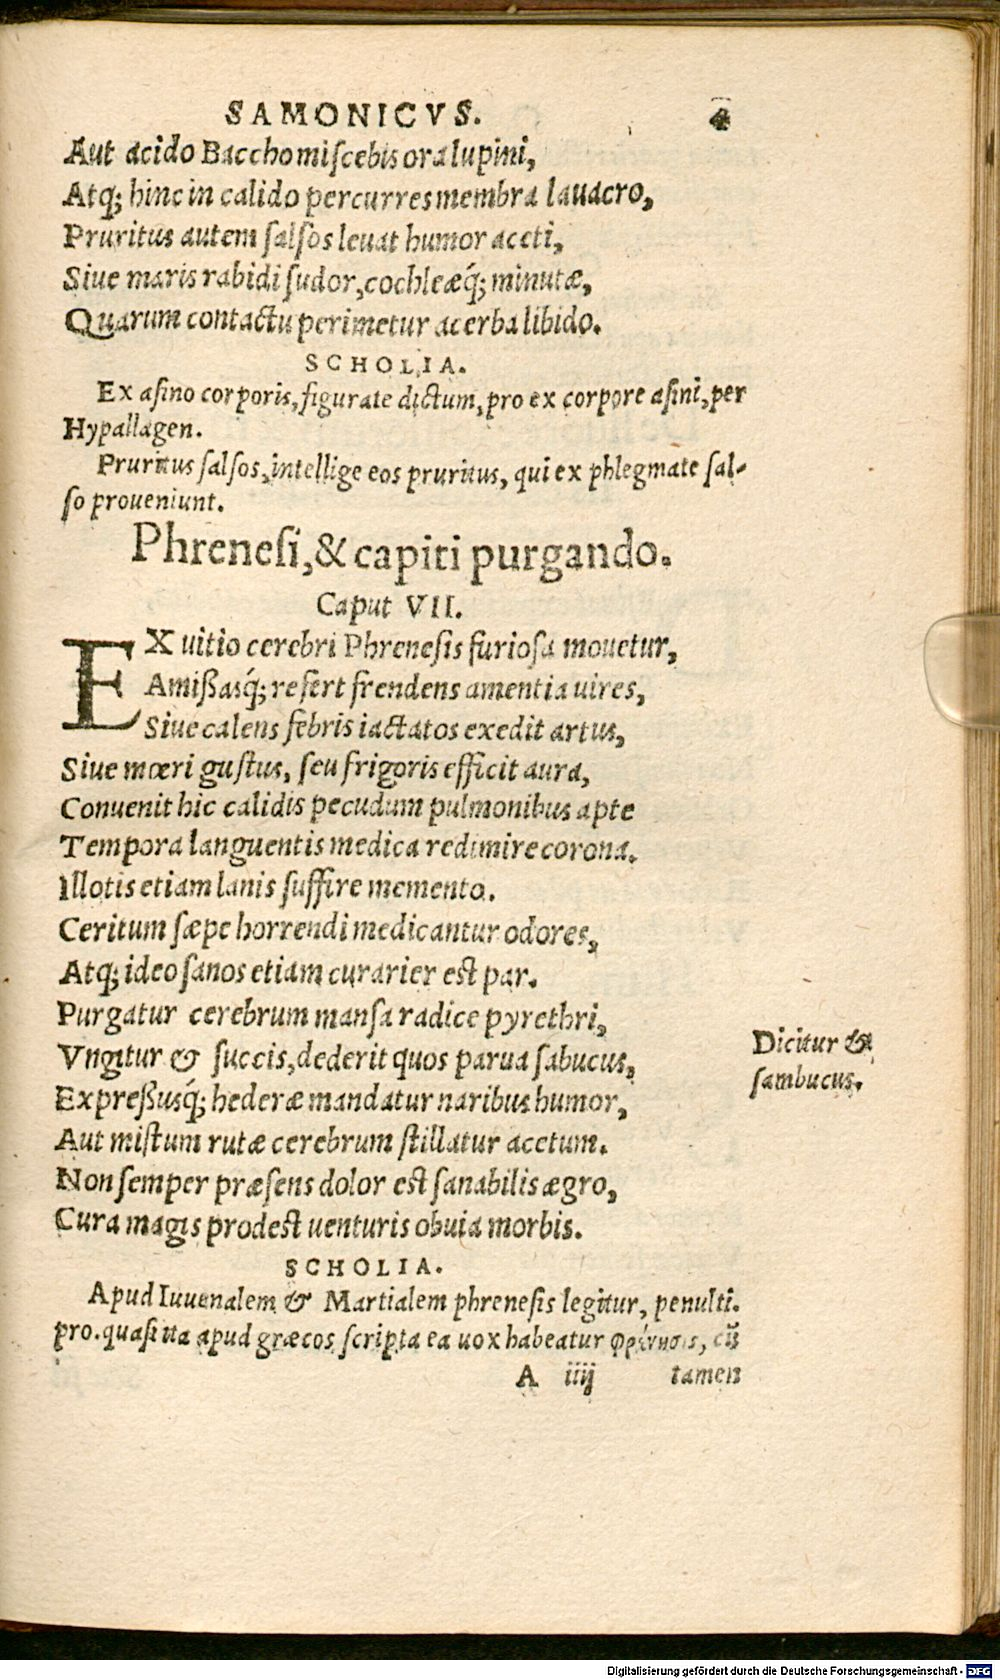 SAMONICVS. 4
Aut acido Baccho miſcebis ora lupini,
Atq; hinc in calido percurres membra lauacro,
Pruritus autem ſalſos leuat humor aceti,
Siue maris rabidi ſudor, cochleæq́; minutæ,
Quarum contactu perimetur acerba libido.
SCHOLIA.
Ex aſino corporis, figurate dictum, pro ex corpore aſini, per
Hypallagen.
Pruritus ſalſos, intellige eos pruritus, qui ex phlegmate ſal-
ſo proueniunt.
Phreneſi, & capiti purgando.
Caput VII.
EX uitio cerebri Phreneſis furioſa mouetur,
Amißasq́; refert frendens amentia uires,
Siue calens febris iactatos exedit artus,
Siue mœri guſtus, ſeu frigoris efficit aura,
Conuenit hic calidis pecudum pulmonibus apte
Tempora languentis medica redimire corona.
Illotis etiam lanis ſuffire memento.
Ceritum ſæpe horrendi medicantur odores,
Atq; ideo ſanos etiam curarier eſt par.
Purgatur cerebrum manſa radice pyrethri,
Vngitur & ſuccis, dederit quos parua ſabucus,
Dicitur &
ſambucus.
Expreßusq́; hederæ mandatur naribus humor,
Aut miſtum rutæ cerebrum ſtillatur acetum.
Non ſemper præſens dolor eſt ſanabilis ægro,
Cura magis prodeſt uenturis obuia morbis.
SCHOLIA.
Apud Iuuenalem & Martialem phreneſis legitur, penulti.
pro. quaſi ita apud græcos ſcripta ea uox habeatur φρένησις, cũ
A iiij tamen
Digitalisierung gefördert durch die Deutsche Forschungsgemeinschaft - DFG